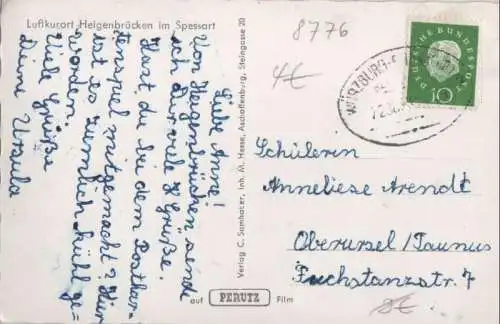 Luftkurort Heigenbrücken im Spessart
8776
4€
WÜRZBURG
DEUTSCHE BUNDESPOST
10
Liebe Anne!
Von Heigenbrücken sende
ich Dir viele Grüße.
Hast du bei dem Postkar-
tenspiel mitgemacht? Hier
ist es ziemlich kühl ge-
worden.
Viele Grüße
Deine Ursula
Verlag C. Samhaber, Inh. M. Hesse, Aschaffenburg, Steingasse 20
auf PERUTZ Film
Schülerin
Anneliese Arendt
Oberursel/Taunus
Fuchstanzstr. 7